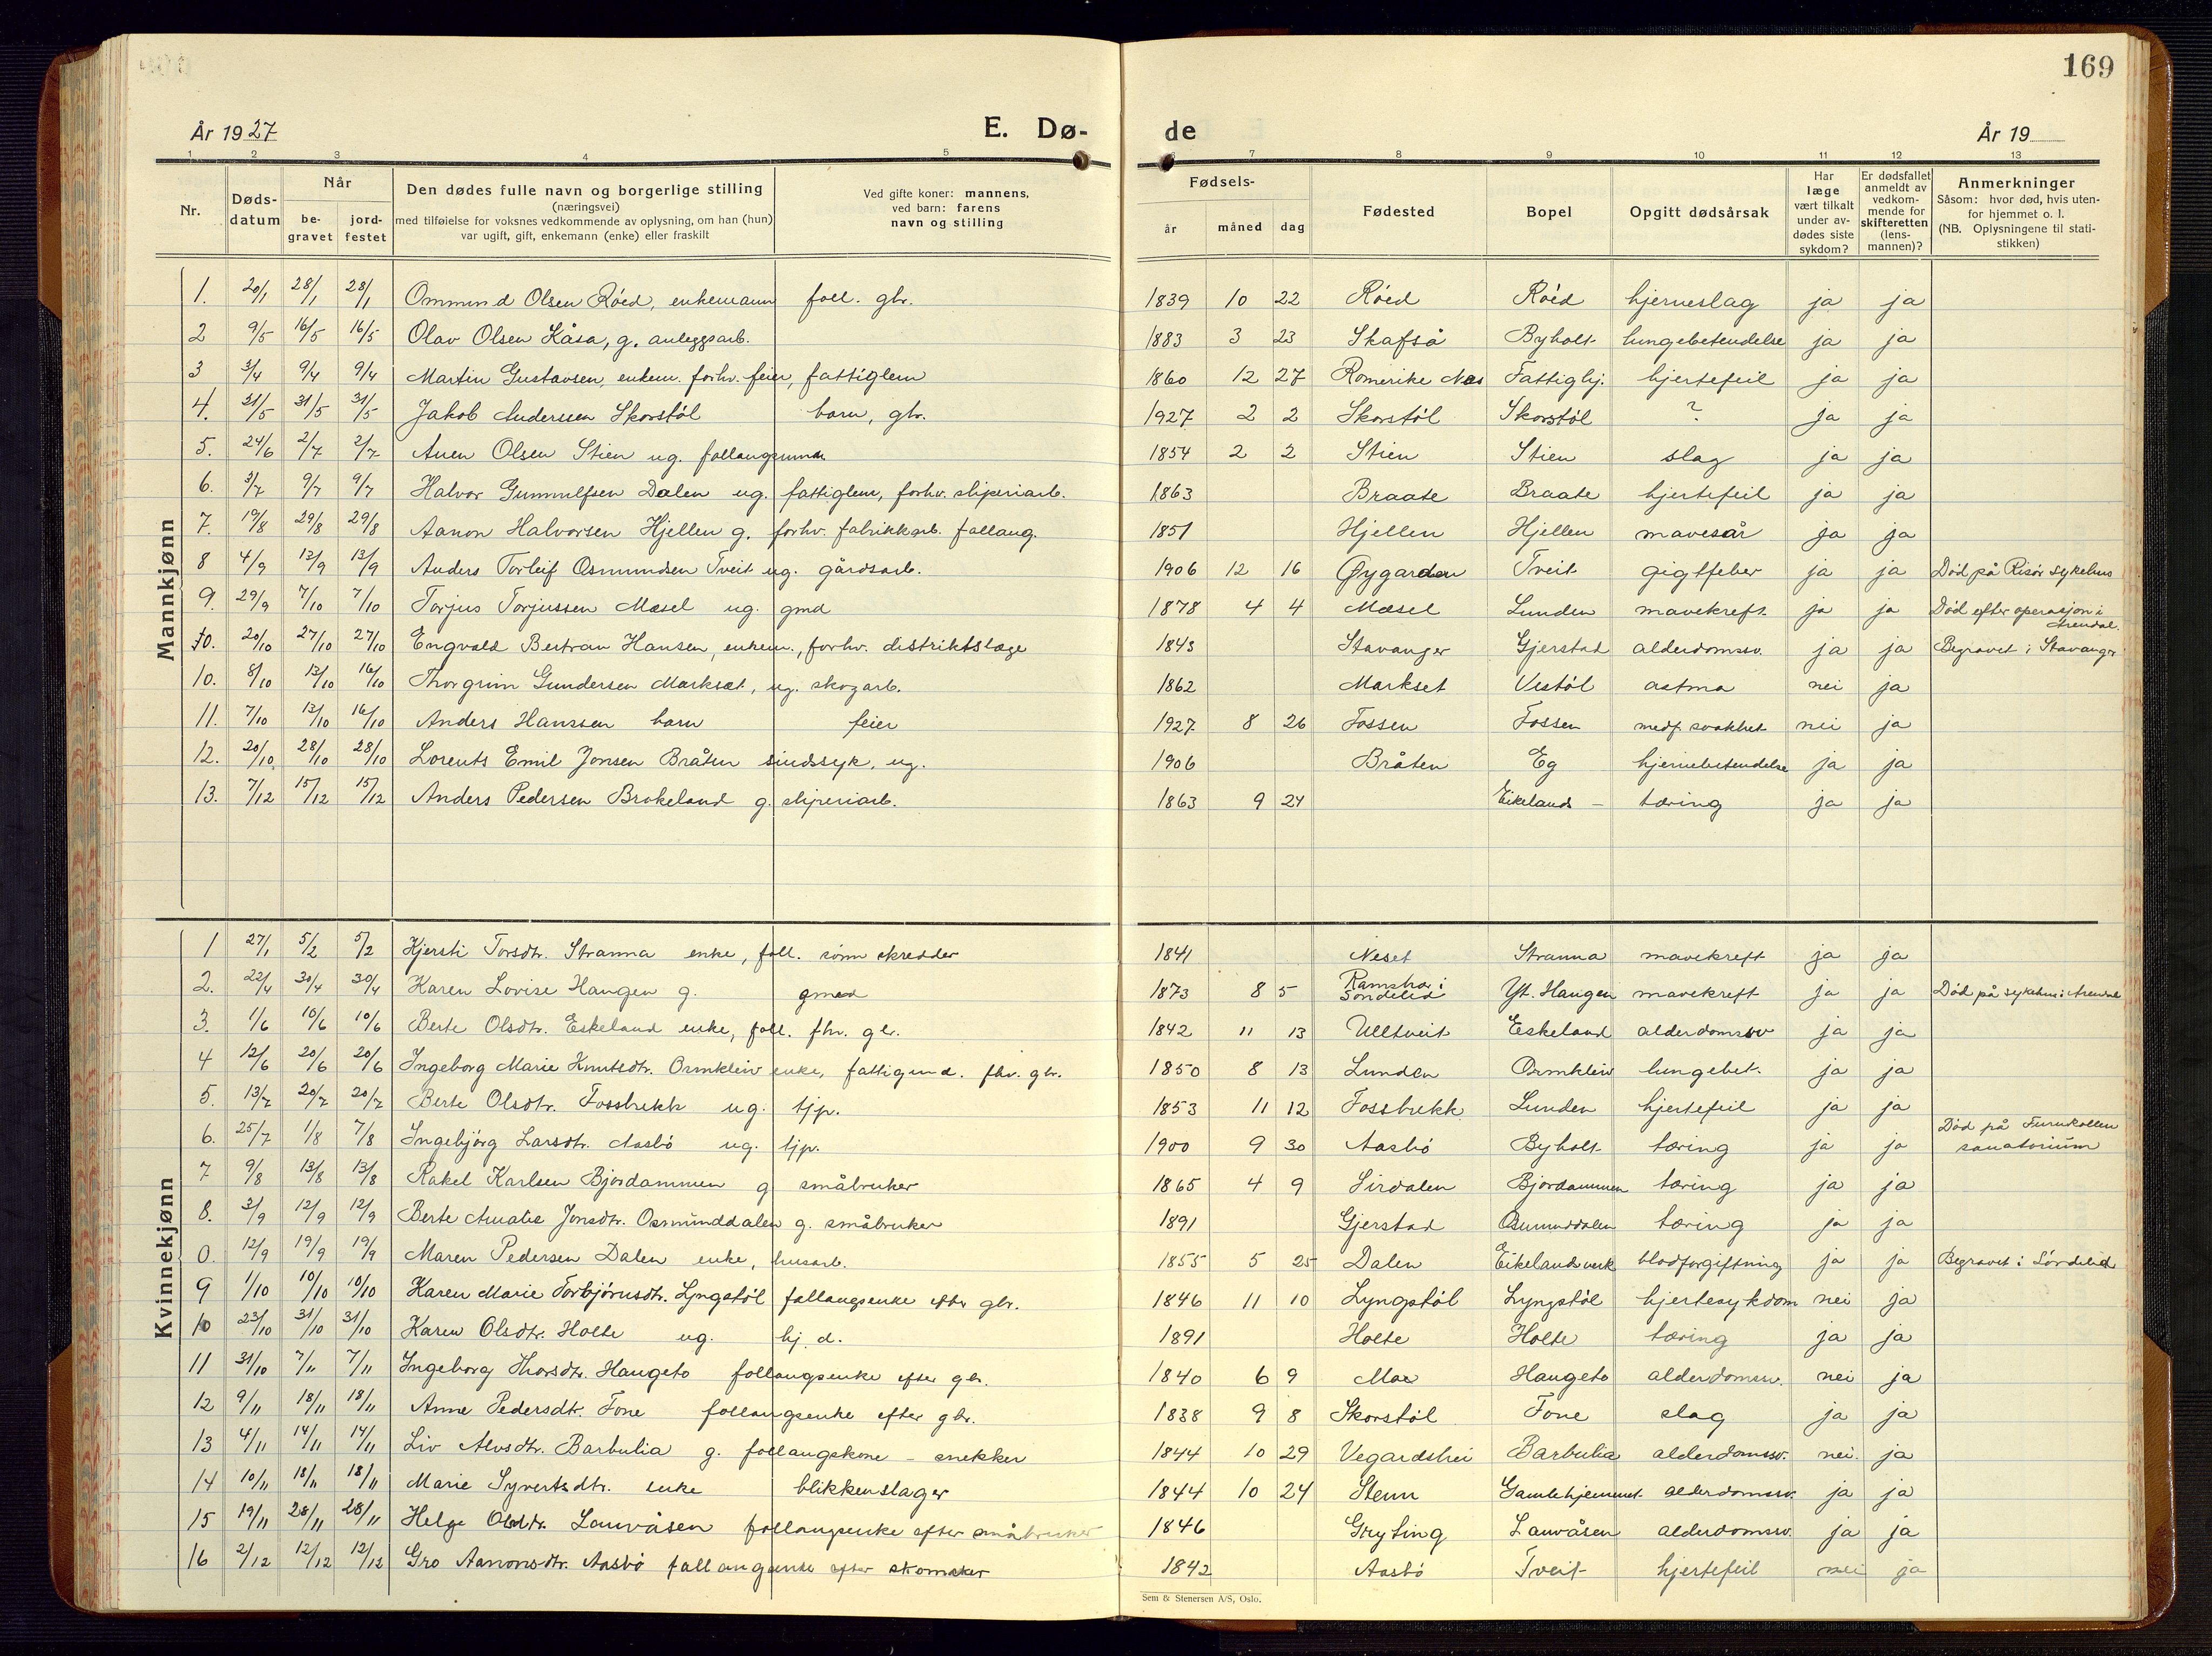 169
År 1927 E. Dø- de År 19
1 2 3 4 5 6 7 8 9 10 11 12 13
Nr. Døds-datum Når be-gravet jord-festet Den dødes fulle navn og borgerlige stilling (næringsvei) med tilføielse for voksnes vedkommende av oplysning, om han (hun) var ugift, gift, enkemann (enke) eller fraskilt Ved gifte koner: mannens, ved barn: farens navn og stilling Fødsels- år måned dag Fødested Bopel Opgitt dødsårsak Har læge vært tilkalt under av-dødes siste sykdom? Er dødsfallet anmeldt av vedkom-mende for skifteretten (lens-mannen)? Anmerkninger Såsom: hvor død, hvis uten-for hjemmet o. l. (NB. Oplysningene til stati-stikken)
Mannkjønn
1. 20/1 28/1 28/1 Ommund Olsen Röed, enkemann foll. gbr. 1839 10 22 Röed Röed hjerneslag ja ja
2 9/5 16/5 16/5 Olav Olsen Kåsa, g. anleggsarb. 1883 3 23 Skafså Byholt lungebetendelse ja ja
3 3/4 9/4 9/4 Martin Gustavsen, enkem. forhv. feier, fattiglem 1860 12 27 Romerike Nes Fattighj. hjertefeil ja ja
4. 21/5 31/5 31/5 Jakob Anderssen Skorstöl barn, gbr. 1927 2 2 Skorstöl Skorstöl ? ja ja
5. 24/6 2/7 2/7 Auen Olsen Stien ug. follaugsmann 1854 2 2 Stien Stien slag ja ja
6. 3/7 9/7 9/7 Halvor Gunnulfsen Dalen ug. fattiglem, forhv. sliperiarb. 1863 Braate Braate hjertefeil ja ja
7. 19/8 29/8 29/8 Aanon Halvorsen Hjellen g. forhv. fabrikkarb. follaug. 1851 Hjellen Hjellen mavesår ja ja
8 4/9 13/9 13/9 Anders Torleif Osmundsen Tveit ug. gårdsarb. 1906 12 16 Øygarden Tveit gigtfeber ja ja Död på Risör sykehus
9. 29/9 7/10 7/10 Torjus Torjussen Mæsel ug. gmd 1878 4 4 Mæsel Lunden mavekreft ja ja Död efter operasjon i Arendal.
10. 20/10 27/10 27/10 Engvald Bertran Hansen, enkem., forhv. distriktslæge 1843 Stavanger Gjerstad alderdomssv. ja ja Begravet i Stavanger
10. 8/10 13/10 16/10 Thorgrim Gundersen Markset, ug. skogarb. 1862 Markset Vestöl astma nei ja
11. 7/10 13/10 16/10 Anders Hanssen barn feier 1927 8 26 Fossen Fossen medf. svakhet nei ja
12. 20/10 28/10 28/10 Lorents Emil Jonsen Bråten sindssyk, ug. 1906 Bråten Eg hjernebetendelse ja ja
13. 7/12 15/12 15/12 Anders Pedersen Brokeland g. sliperiarb. 1863 9 24 Eikelands - tæring ja ja
Kvinnekjønn
1 27/1 5/2 5/2 Kjersti Torsdtr. Stranna enke, foll. sönn skredder 1841 Neset Stranna mavekreft ja ja
2. 22/4 30/4 30/4 Karen Lovise Haugen g. gmd 1873 8 5 i Söndeled Yt. Haugen mavekreft ja ja Död på sykehus i Arendal
3. 1/6 10/6 10/6 Berte Olsdtr. Eskeland enke, foll. fhv. gbr. 1842 11 13 Ulltveit Eskeland alderdomssv ja ja
4 12/6 20/6 20/6 Ingeborg Marie Knutsdtr. Ormkleiv enke, fattigund. fhv. gbr. 1850 8 13 Lunden Ormkleiv lungebet. ja ja
5. 13/7 20/7 20/7 Berte Olsdtr. Fossbrekk ug. tjp. 1853 11 12 Fossbrekk Lunden hjertefeil ja ja
6. 25/7 1/8 7/8 Ingebjörg Larsdtr. Aasbö ug. tjp. 1900 9 30 Aasbö Byholt tæring ja ja Död på Furukollen sanatorium
7 9/8 13/8 13/8 Rakel Karlsen Bjordammen g småbruker 1865 4 9 Lirdalen Bjordammen tæring ja ja
8. 3/9 12/9 12/9 Berte Amalie Jonsdtr. Osmunddalen g. småbruker 1891 Gjerstad Osmunddalen tæring ja ja
0. 12/9 19/9 19/9 Maren Pedersen Dalen enke, husarb. 1855 5 25 Dalen Eikelandsverk blodforgiftning ja ja Begravet i Söndeled
9 1/10 10/10 10/10 Karen Marie Torbjörnsdtr. Lyngstöl follaugsenke efter gbr. 1846 11 10 Lyngstöl Lyngstöl hjertesykdom nei ja
10 23/10 31/10 31/10 Karen Olsdtr. Holte ug. hj. d. 1891 Holte Holte tæring ja ja
11 31/10 7/11 7/11 Ingeborg Thorsdtr. Haugeto follaugsenke efter gbr. 1840 6 9 Moe Haugeto alderdomssv. nei ja
12 9/11 18/11 18/11 Anne Pedersdtr. Fone follaugsenke efter gbr. 1838 9 8 Skorstöl Fone slag ja ja
13 4/11 14/11 14/11 Liv Alvsdtr. Barbulia g. follaugskone - snekker 1844 10 29 Vegardshei Barbulia alderdomssv. nei ja
14 10/11 18/11 18/11 Marie Syvertsdtr. enke blikkenslager 1844 10 24 Stenn Gamlehjemmet alderdomssv. ja ja
15 19/11 28/11 28/11 Helge Olsdtr. Lauvåsen follaugsenke efter småbruker 1846 Gryting Lauvåsen alderdomssv. ja ja
16 2/12 12/12 12/12 Gro Aanonsdtr. Aasbö follaugsenke efter skomaker 1842 Aasbö Tveit hjertefeil nei ja
Sem & Stenersen A/S, Oslo.